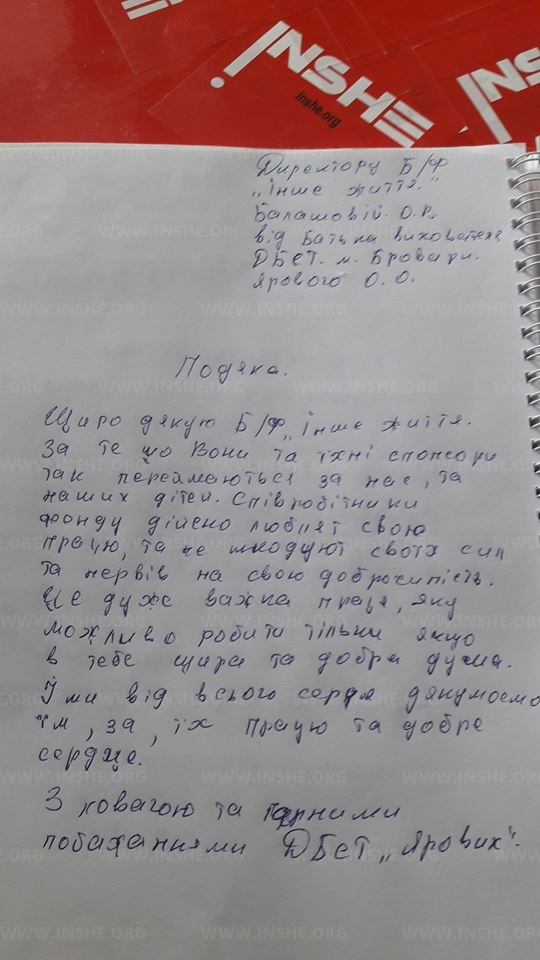 INSHE
inshe.org
INSHE
Директору Б/Ф
„Інше життя."
Балашовій. О.Р.
від Батька вихователя
ДБСТ. м. Бровари.
Ярового О. О.
Подяка.
Щиро дякую Б/Ф „Інше життя.
За те що Вони та їхні спонсори
так переймаються за нас, та
наших дітей. Співробітники
фонду дійсно люблят свою
працю, та не шкодуют своїх сил
та нервів на свою добросипість.
Це дуже важка праця, яку
можливо робити тільки якщо
в тебе щира та добра душа.
І ми від всього сердця дякуюємо
їм, за, їх працю та добре
сердце.
З повагою та гарними
побажаннями ДБСТ „Ярових".
WWW.INSHE.ORG